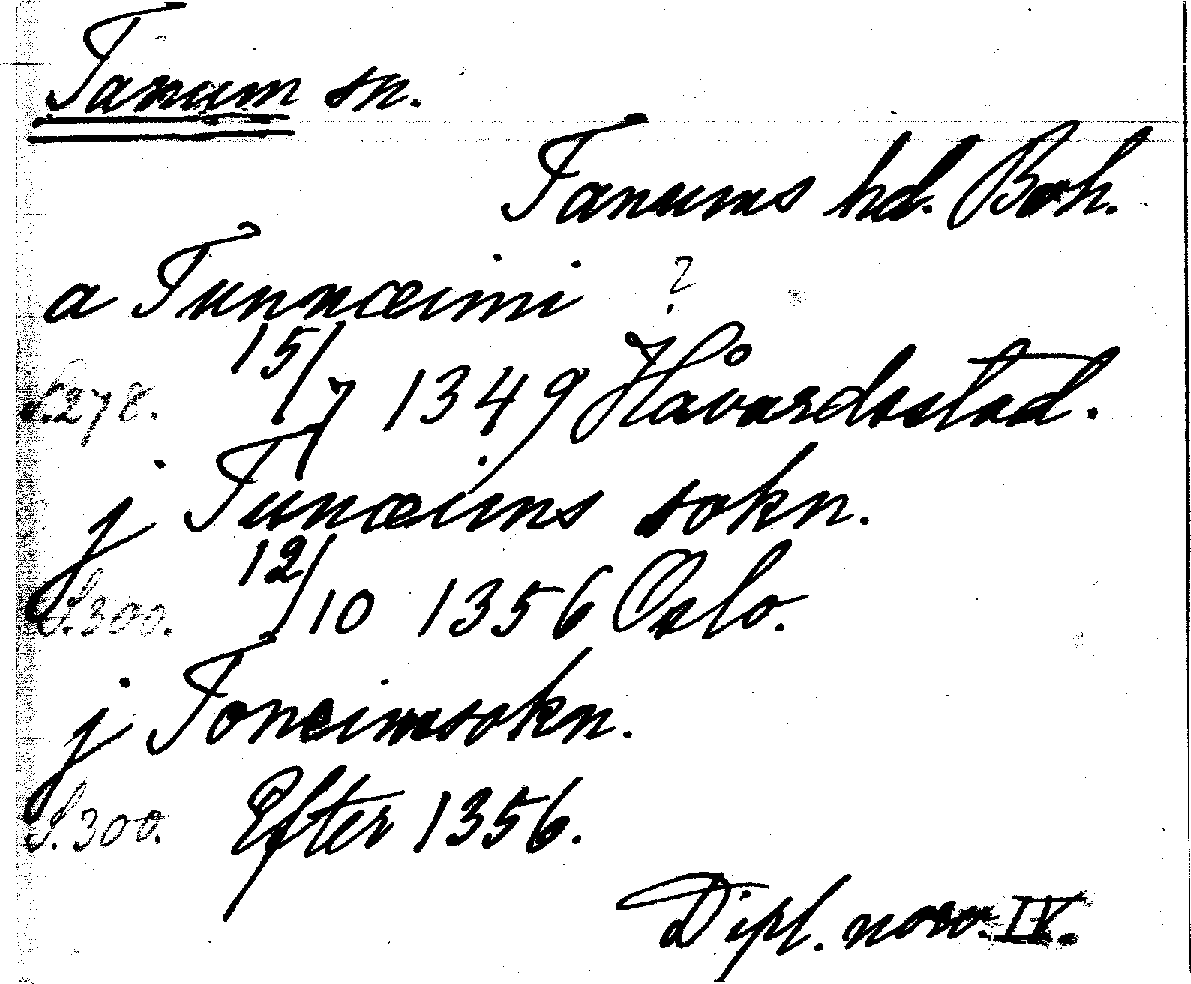 Tanum sn.
Tanums hd. Boh.
a Tunnæimi ?
S. 278. 15/7 1349 Håvardsstad.
j Tunæims sokn.
S. 300. 12/10 1356 Oslo.
j Toneimsokn.
S. 300. Efter 1356.
Dipl. norv. IV.